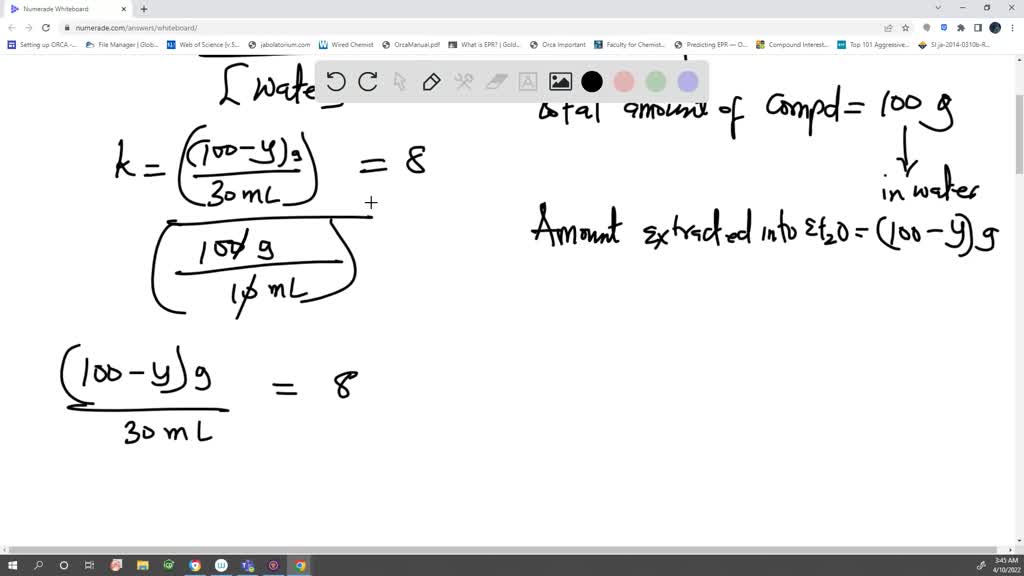 Numerade Whiteboard
numerade.com/answers/whiteboard/
Setting up ORCA -... File Manager | Glob... Web of Science [v.5... jabolatorium.com Wired Chemist OrcaManual.pdf What is EPR? | Gold... Orca Important Faculty for Chemist... Predicting EPR — O... Compound Interest... Top 101 Aggressive... SI ja-2014-0310b-R...
[Water]
total amount of compd = 100 g
in water
k = ((100-y)g
30 mL) = 8
(100 g
10 mL)
Amount extracted into Et2O = (100-y) g
(100-y) g = 8
30 mL
3:45 AM
4/10/2022